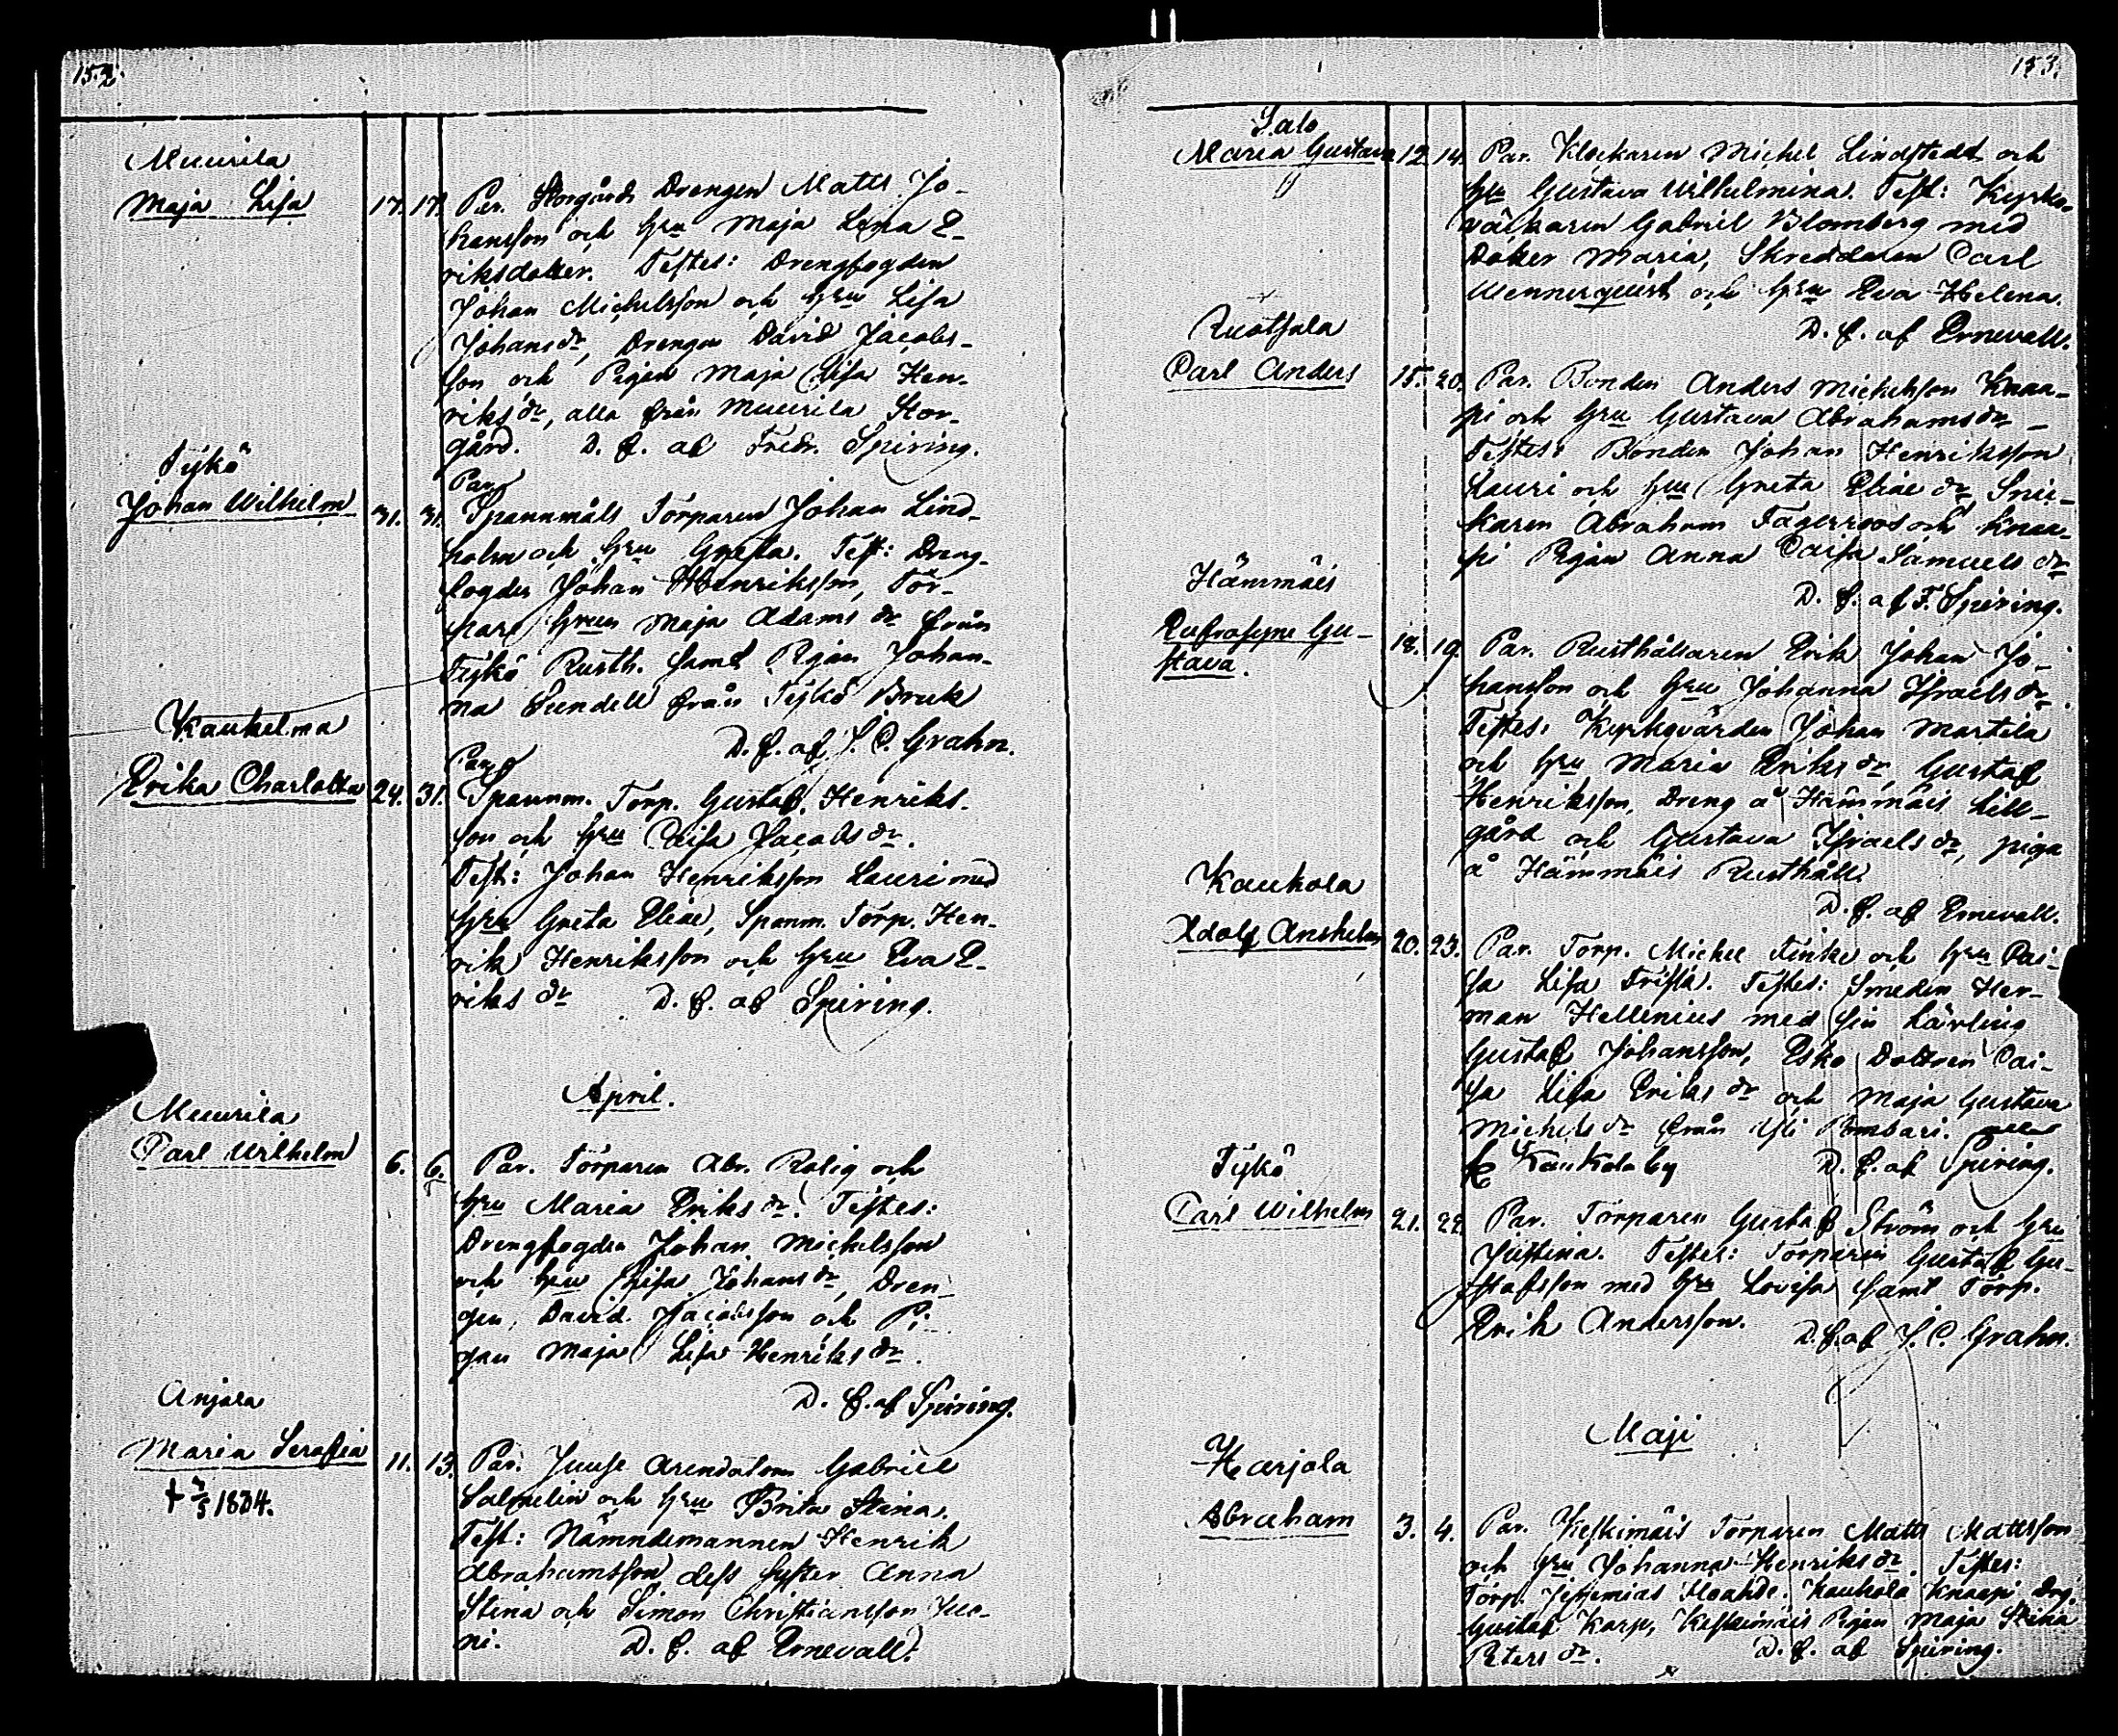 152.
Muurila
Maja Lisa 17. 17. Par. Storgårds Drengen Matts Jo-
hansson och hru Maja Lena E-
riksdotter. Testes: Drengfogden
Johan Michelsson och hru Lisa
Johansdr, Drengen David Jacobs-
son och Pigan Maja Lisa Hen-
riksdr, alla från Muurila Stor-
gård. D. f. af Fredr. Spiring.
Tykö
Par
Johan Wilhelm 31. 31. Spannmåls Torparen Johan Lind-
holm och hru Greta. Test: Dreng-
fogden Johan Henriksson, Tor-
par hrun Maja Adams dr från
Tykö Rusth. samt Pigan Johan-
na Sundell från Tykö Bruk
D. f. af J. C. Grahn.
Kaukelma
Par
Erika Charlotta 24. 31. Spannm. Torp. Gustaf Henriks-
son och hru Caisa Jacobsdr.
Test: Johan Henriksson Lauri med
hru Greta Eliae, Spanm. Torp. Hen-
rik Henriksson och hru Eva E-
riks dr D. f. af Spiring.
April.
Muurila
Carl Wilhelm 6. 6. Par. Torparen Abr. Rolig och
hru Maria Eriks dr. Testes:
Drengfogden Johan Michelsson
och hru Lisa Johansdr, Dren-
gen David Jacobsson och Pi-
gan Maja Lisa Henriksdr.
D. f. af Spiring.
Anjala
Maria Serafia 11. 13. Par. Juuse Arendatorn Gabriel
† 7/5 1834. Salmelin och hru Brita Stina.
Test: Nämndemannen Henrik
Abrahamsson dess syster Anna
Stina och Simon Christiansson Juo-
ni. D. f. af Ernevall.
153.
Salo
Maria Gustava 12. 14. Par. Klockaren Michel Lindstedt och
hru Gustava Wilhelmina. Test: Kyrko-
väcktaren Gabriel Blomberg med
Doter Maria, Skreddaren Carl
Wennerquist och hru Eva Helena.
D. f. af Ernevall.
Ruotsala
Carl Anders 15. 20. Par. Bonden Anders Michelsson Knaa-
pi och hru Gustava Abrahamsdr –
Testes: Bonden Johan Henriksson
Lauri och hru Greta Eliae dr, Snic-
karen Abraham Fagerroos och Knaa-
pi Pigan Anna Caisa Samuels dr
D. f. af F. Spiring.
Hämmäis
Eufrosyne Gu-
stava. 18. 19. Par. Rusthållaren Erik Johan Jo-
hansson och hru Johanna Israelsdr.
Testes: Kyrkovärden Johan Martela
och hru Maria Eriks dr, Gustaf
Henriksson, Dreng å Hämmäis Lill-
gård och Gustava Israels dr, piga
å Hämmäis Rusthåll.
D. f. af Ernevall.
Kaukola
Adolf Anshelm 20. 23. Par. Torp. Michel Finke och hru Cai-
sa Lisa Frista. Testes: Smeden Her-
man Hellenius med sin Lärling
Gustaf Johansson, Esko Dottren Cai-
sa Lisa Eriks dr och Maja Gustava
Michels dr från Yli Pombari.
fr Kaukola by D. f. af Spiring.
Tykö
Carl Wilhelm 21. 22. Par. Torparen Gustaf Ström och hru
Justina. Testes: Torparen Gustaf Gu-
stafsson med hru Lovisa samt Torp.
Erik Andersson. D. f. af J. C. Grahn.
Maji
Karjola
Abraham 3. 4. Par. Keskimäis Torparen Matts Mattsson
och hru Johanna Henriksdr. Testes:
Torp. Jeremias Kaukola Knaapi Drg.
Gustaf Karp, Keskimäis Pigan Maja Stina
Peters dr. D. f. af Spiring.